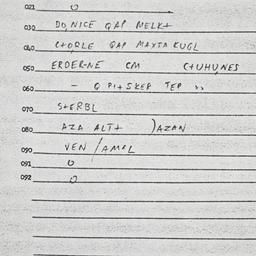 021 0
030 DO,NICE QAP MELK+
040 C+ORLE QAP MAYTA KUGL
050 ERDER-NE CM C+UHU,NES
060 - Q PI+SKER TEP "
070 S+ERBL
080 AZA ALT+ )AZAN
090 VEN /AMEL
091 0
092 0